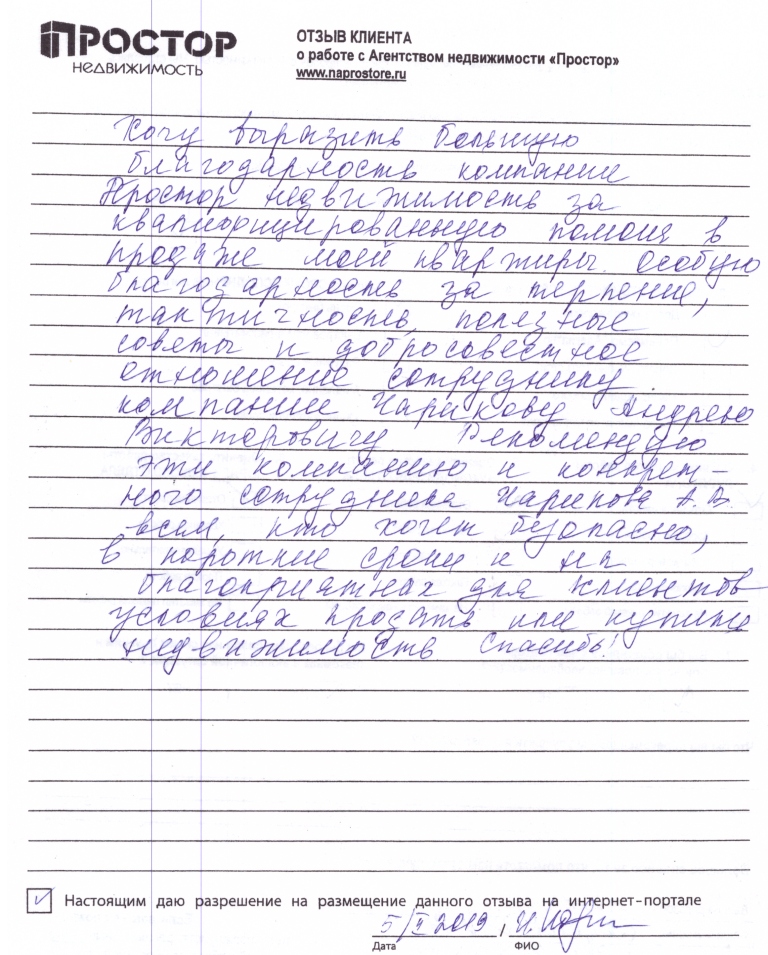 ПРОСТОР
НЕДВИЖИМОСТЬ
ОТЗЫВ КЛИЕНТА
о работе с Агентством недвижимости «Простор»
www.naprostore.ru
Хочу выразить большую
благодарность компании
Простор недвижимость за
квалифицированную помощь в
продаже моей квартиры. Особую
благодарность за терпение,
тактичность, полезные
советы и добросовестное
отношение сотруднику
компании Чарикову Андрею
Викторовичу Рекомендую
эти компанию и конкрет-
ного сотрудника Чарикова А.В.
всем, кто хочет безопасно,
в короткие сроки и на
благоприятнах для клиентов
условиях продать или купить
недвижимость Спасибо!
Настоящим даю разрешение на размещение данного отзыва на интернет-портале
5/V 2019 /
Дата ФИО